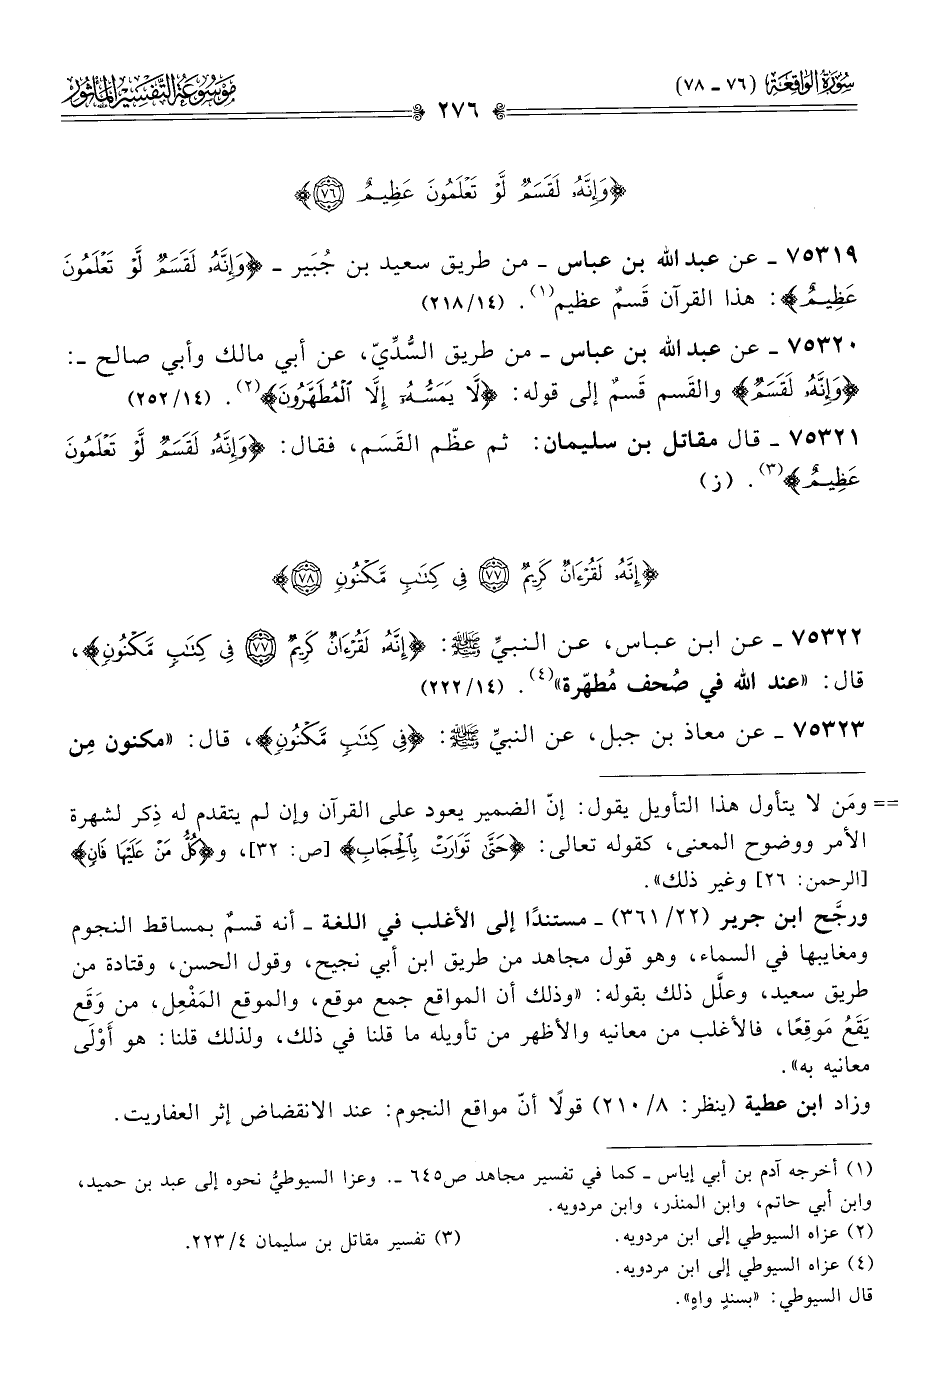 سورة الواقعة (٧٦ - ٧٨)
موسوعة التفسير المأثور
٢٧٦
﴿وَإِنَّهُۥ لَقَسَمٌ لَّوْ تَعْلَمُونَ عَظِيمٌ ۝٧٦﴾
٧٥٣١٩ - عن عبد الله بن عباس - من طريق سعيد بن جُبَير - ﴿وَإِنَّهُۥ لَقَسَمٌ لَّوْ تَعْلَمُونَ
عَظِيمٌ﴾: هذا القرآن قَسمٌ عظيم(١). (٢١٨/١٤)
٧٥٣٢٠ - عن عبد الله بن عباس - من طريق السُّدِّيّ، عن أبي مالك وأبي صالح -:
﴿وَإِنَّهُۥ لَقَسَمٌ﴾ والقَسم قَسمٌ إلى قوله: ﴿لَّا يَمَسُّهُۥٓ إِلَّا ٱلْمُطَهَّرُونَ﴾(٢). (٢٥٢/١٤)
٧٥٣٢١ - قال مقاتل بن سليمان: ثم عظّم القَسَم، فقال: ﴿وَإِنَّهُۥ لَقَسَمٌ لَّوْ تَعْلَمُونَ
عَظِيمٌ﴾(٣). (ز)
﴿إِنَّهُۥ لَقُرْءَانٌ كَرِيمٌ ۝٧٧ فِى كِتَٰبٍ مَّكْنُونٍ ۝٧٨﴾
٧٥٣٢٢ - عن ابن عباس، عن النبيِّ ﷺ: ﴿إِنَّهُۥ لَقُرْءَانٌ كَرِيمٌ ۝٧٧ فِى كِتَٰبٍ مَّكْنُونٍ﴾،
قال: «عند الله في صُحف مُطهّرة»(٤). (٢٢٢/١٤)
٧٥٣٢٣ - عن معاذ بن جبل، عن النبيِّ ﷺ: ﴿فِى كِتَٰبٍ مَّكْنُونٍ﴾، قال: «مكنون مِن
== ومَن لا يتأول هذا التأويل يقول: إنّ الضمير يعود على القرآن وإن لم يتقدم له ذِكر لشهرة
الأمر ووضوح المعنى، كقوله تعالى: ﴿حَتَّىٰ تَوَارَتْ بِٱلْحِجَابِ﴾ [ص: ٣٢]، و﴿كُلُّ مَنْ عَلَيْهَا فَانٍ﴾
[الرحمن: ٢٦] وغير ذلك».
ورجَّح ابن جرير (٣٦١/٢٢) - مستندًا إلى الأغلب في اللغة - أنه قسمٌ بمساقط النجوم
ومغايبها في السماء، وهو قول مجاهد من طريق ابن أبي نجيح، وقول الحسن، وقتادة من
طريق سعيد، وعلَّل ذلك بقوله: «وذلك أن المواقع جمع موقع، والموقع المَفْعِل، من وَقَع
يَقَعُ مَوقِعًا، فالأغلب من معانيه والأظهر من تأويله ما قلنا في ذلك، ولذلك قلنا: هو أَوْلَى
معانيه به».
وزاد ابن عطية (ينظر: ٢١٠/٨) قولًا أنّ مواقع النجوم: عند الانقضاض إثر العفاريت.
(١) أخرجه آدم بن أبي إياس - كما في تفسير مجاهد ص٦٤٥ -. وعزا السيوطيُّ نحوه إلى عبد بن حميد،
وابن أبي حاتم، وابن المنذر، وابن مردويه.
(٢) عزاه السيوطي إلى ابن مردويه. (٣) تفسير مقاتل بن سليمان ٢٢٣/٤.
(٤) عزاه السيوطي إلى ابن مردويه.
قال السيوطي: «بسندٍ واهٍ».